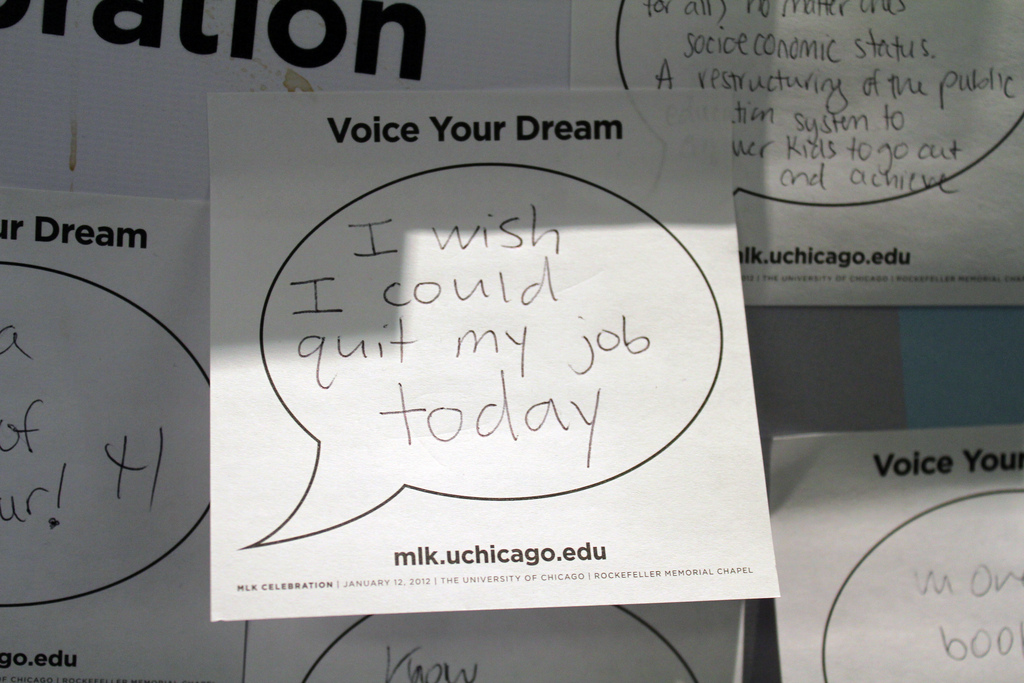 ration
for all) no matter
socioeconomic status.
A restructuring of the public
education system to
kids to go out
and achieve
mlk.uchicago.edu
2012 | THE UNIVERSITY OF CHICAGO | ROCKEFELLER MEMORIAL CHAPEL
Voice Your Dream
I wish
I could
quit my job
today
mlk.uchicago.edu
MLK CELEBRATION | JANUARY 12, 2012 | THE UNIVERSITY OF CHICAGO | ROCKEFELLER MEMORIAL CHAPEL
ur Dream
a
of
ur!
go.edu
OF CHICAGO | ROCKEFELLER MEMORIAL CHAPEL
Know
Voice Your
more
book